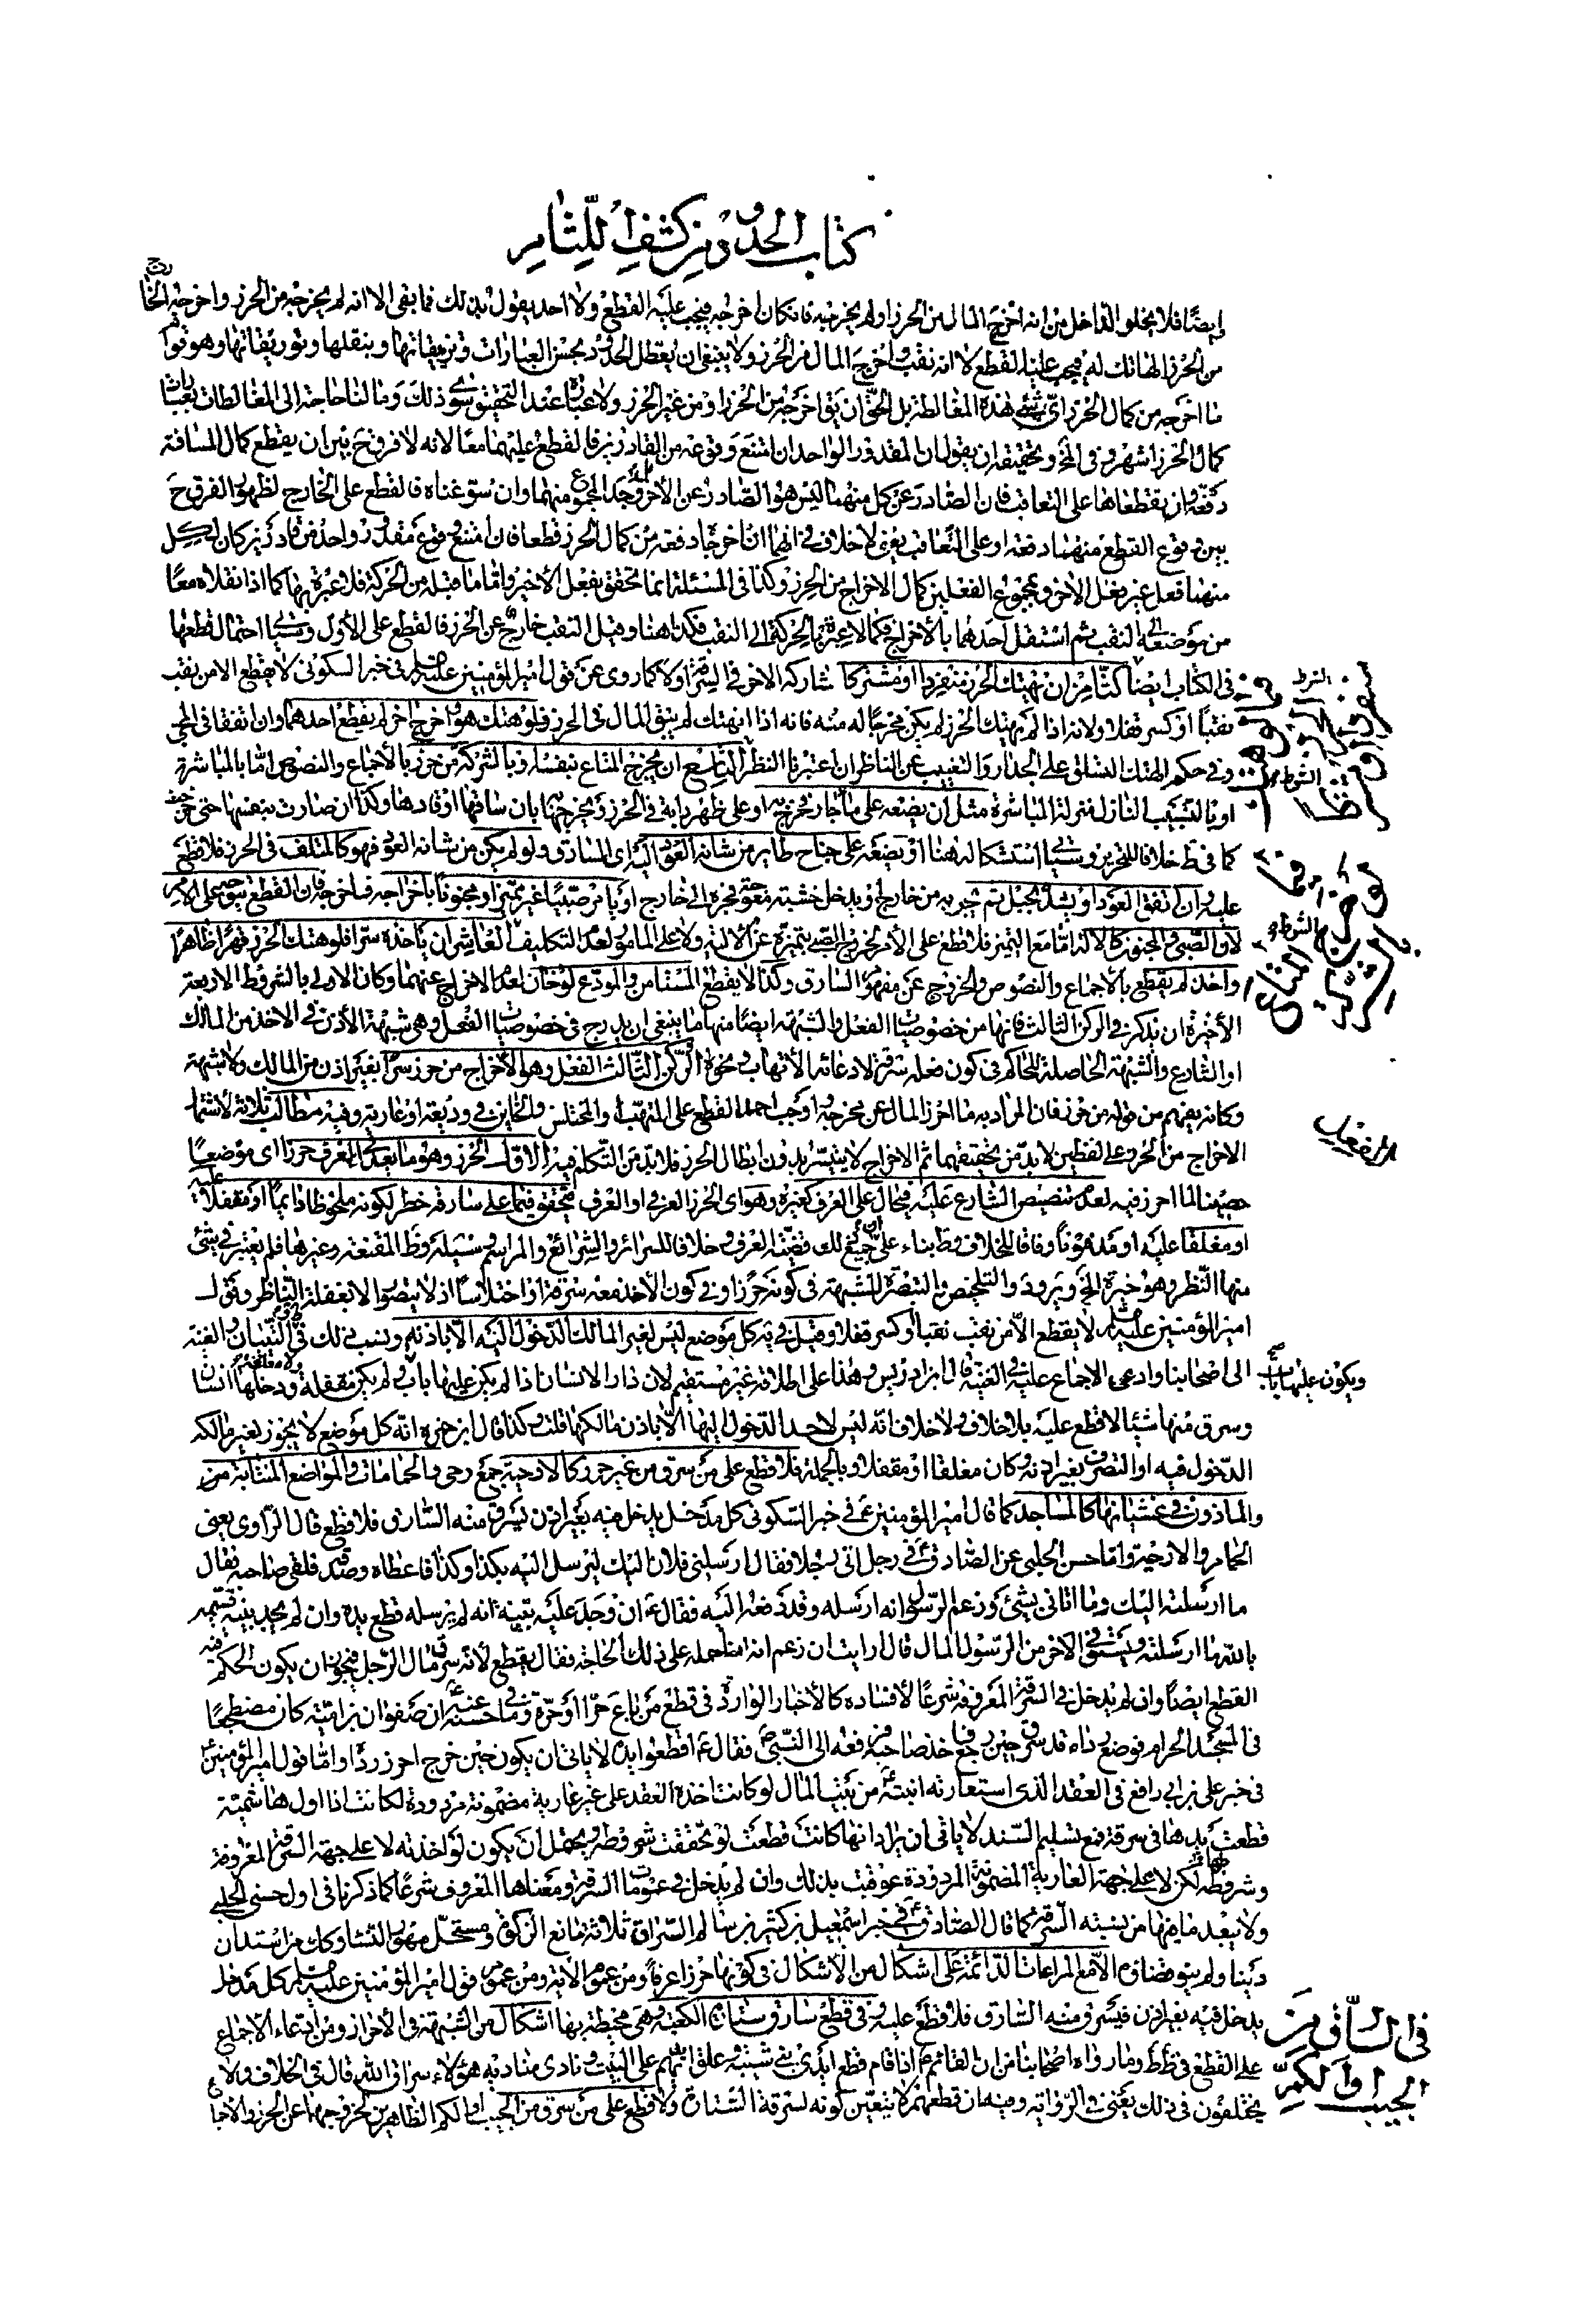 كتاب الحدود من كشف اللثام
ايضًا فلا يخلو الداخل من انه اخرج المال من الحرز او لم يخرجه فان كان اخرجه فيجب عليه القطع ولا احد يقول بذلك فما بقى الا انه لم يخرجه من الحرز واخرجه الخارج
من الحرز الهاتك له فيجب عليه القطع لانه نقب واخرج المال من الحرز ولا ينبغى ان يعطل الحدود بحسن العبارات وتزييفاتها وبنقلها وتوريقاتها وهو قولهم
ما اخرجه من كمال الحرز اىّ شئ هذه المغالطة بل الحق ان يق اخرجه من الحرز او من غير الحرز ولا عبارة عند التحقيق سوى ذلك وما لنا حاجة الى المغالطات بعبارات
كمال الحرز انتهى وفى المخ وتحقيقه ان يقول ان المقدور الواحد ان امتنع وقوعه من القادرين فالقطع عليهما معًا لانه لا فرق ح بين ان يقطع كمال المسافة
دفعة وان يقطعاها على التعاقب فان الصادر عن كل منهما ليس هو الصادر عن الاخر وجد المجموع منهما وان سوغناه فالقطع على الخارج لظهور الفرق ح
بين وقوع القطع منهما دفعة او على التعاقب يعنى لا خلاف فى انهما ان اخرجاه دفعة من كمال الحرز قطعا فان امتنع وقوع مقدور واحد من قادرين كان لكل
منهما فعل غير فعل الاخر وبمجموع الفعلين كمال الاخراج من الحرز وكذا فى المسئلة انما تحقق بفعل الاخير واما ما قبله من الحركة فلا عبرة بها كما اذا نقلاه معًا
من موضعه الى النقب ثم استقل احدهما بالاخراج فكما لا عبرة بالحركة الى النقب فكذا هنا وقيل النقب خارج عن الحرز فالقطع على الاول وسياتى احتمال قطعها
فى الكتاب ايضا الثامن ان يهتك الحرز منفردا او مشتركا شاركه الاخر فى السرقة او لا كما روى عن قول امير المؤمنين عليه السلم فى خبر السكونى لا يقطع الا من نقب
نقبًا او كسر قفلا ولانه اذا لم يهتك الحرز لم يكن مخرجًا له منه فانه اذا انهتك لم يبق المال فى الحرز فلو هتك هو واخرج اخر لم يقطع احدهما وان اتفقا فى المجئ
وفى حكم الهتك التسلق على الجدار والتغييب عن الناظر ان اعتبرنا النظر التاسع ان يخرج المتاع بنفسه او بالشركة من حرز بالاجماع والنصوص اما بالمباشرة
او بالتسبيب النازل منزلة المباشرة مثل ان يضعه على ماء جار فخرج به او على ظهر دابة فى الحرز ويخرج بها بان ساقها او قادها وكذا ان صارت بنفسها حتى خرجت
كما فى ط خلافا للتحرير وسياتى استشكاله هنا او يضعه على جناح طاير من شانه العود اليه اى السارق ولو لم يكن من شانه العود فهو كالمتلف فى الحرز فلا قطع
عليه وان اتفق العود او يشده بحبل ثم يجر به من خارج او يدخل خشبة معوجة فيجره الى خارج او يامر صبيًا غير مميز او مجنونا باخراجه فاخرجه فان القطع يتوجه على الامر
لان الصبى والمجنون كالالة اما مع التميز فلا قطع على الامر لخروج الصبى بتميزه عن الالية ولا على المامور لعدم التكليف العاشر ان ياخذه سرًا فلو هتك الحرز قهرًا ظاهرًا
واخذ لم يقطع بالاجماع والنصوص والخروج عن مفهوم السارق وكذا لا يقطع المستامن والمودع لو خان لعدم الاخراج عنهما وكان الاولى بالشروط الاربعة
الاخيرة ان يذكر فى الركن الثالث فانها من خصوصيات الفعل والشبهة ايضًا منها ما ينبغى ان يدرج فى خصوصيات الفعل وهى شبهة الاذن فى الاخذ من المالك
او الشارع والشبهة الحاصلة للحاكم فى كون فعله سرقة لادعائه الاتهاب ونحوه الركن الثالث الفعل وهو الاخراج من حرز سرًا بغير اذن من المالك ولا شبهة
وكانه يفهم من قوله من حرز فان المراد به ما احرز المال عن مخرجه واوجب احمد القطع على المنتهب والمختلس والخاين فى وديعة او عارية وفيه مطالب ثلاثة لاشتمال
الاخراج من الحرز على لفظين لا بد من تحقيقهما ثم الاخراج لا يتيسر بدون ابطال الحرز فلا بد من التكلم فيه الاول الحرز وهو ما يعد فى العرف حرزا اى موضعًا
حصينا لما احرز فيه لعدم تنصيص الشارع عليه فيحال على العرف كغيره وهو اى الحرز العرفى او العرف يتحقق فيما على سارقه خطر لكونه ملحوظا دايمًا او مقفلا عليه
او مغلقا عليه او مدفونًا وفاقا للخلاف وط بناء على ان جميع ذلك قضية العرف وخلافا للسرائر والشرائع والمراسم وسيلة وظ المقنعة وغيرها فلم يعتبر فى شئ
منها النظر وهو خيرة المخ ويرود والتلخيص والتبصرة للشبهة فى كونه حرزا وفى كون الاخذ معه سرقة او اختلاسًا اذ لا يتصور الا بغفلة الناظر وقول
امير المؤمنين عليه السلم لا يقطع الا من نقب نقبًا او كسر قفلا وقيل فى ية كل موضع ليس لغير المالك الدخول اليه الا باذنه ونسب ذلك فى التبيان والغنية
الى اصحابنا وادعى الاجماع عليه فى الغنية قال ابن ادريس وهذا على اطلاقه غير مستقيم لان دار الانسان اذا لم يكن عليها باب او لم يكن مقفلة ودخلها انسان
ويكون عليها باب
وسرق منها شيئا لا قطع عليه بلا خلاف ولا خلاف انه ليس لاحد الدخول اليها الا باذن مالكها قلت وكذا قال ابن حمزة انه كل موضع لا يجوز لغير مالكه
الدخول فيه او التصرف بغير اذنه وكان مغلقا او مقفلا وبالجملة فلا قطع على من سرق من غير حرز كالارحية جمع رحى والحمامات والمواضع المنتابة من
والماذون فى غشيانها كالمساجد كما قال امير المؤمنين ع فى خبر السكونى كل مدخل يدخل فيه بغير اذن يسرق منه السارق فلا قطع قال الراوى يعنى
الحمام والارحية واما حسن الحلبى عن الصادق ع فى رجل اتى رجلا فقال ارسلنى فلان اليك لترسل اليه بكذا وكذا فاعطاه وصدقه فلقى صاحبه فقال
ما ارسلته اليك وما اتانى بشئ وزعم الرسول انه ارسله وقد دفعه اليه فقال ع ان وجد عليه بينة انه لم يرسله قطع يده وان لم يجد بينة فيمينه
بالله ما ارسلته ويستوفى الاخر من الرسول المال قال ارايت ان زعم انه انما حمله على ذلك الحاجة فقال يقطع لانه سرق مال الرجل فيجوز ان يكون الحكم فيه
القطع ايضًا وان لم يدخل فى السرقة المعروفة شرعًا لافساده كالاخبار الواردة فى قطع من باع حرًا او حرة وما فى حسنه عنه ع ان صفوان بن امية كان مضطجعًا
فى المسجد الحرام فوضع رداءه قد سرق حين رجع فاخذ صاحبه فرفعه الى النبى ص فقال ع اقطعوا يده لا يابى ان يكون حين خرج احرز رداءه واما قول امير المؤمنين ع
فى خبر على بن ابى رافع فى العقد الذى استعارته ابنته ع من بيت المال لو كانت اخذت العقد على غير عارية مضمونة مردودة لكانت اذا اول هاشمية
قطعت يدها فى سرقة فمع تسليم السند لا يابى ان يراد انها كانت قطعت لو تحققت شروطه ويحتمل ان يكون لو اخذته لا على جهة السرقة المعروفة
وشروطها لكن لا على جهة العارية المضمونة المردودة عوقبت بذلك وان لم يدخل فى عمومات السرقة ومعناها المعروف شرعًا كما ذكرنا فى اول حسنى الحلبى
ولا يبعد ما فيهما من تسميته السرقة كما قال الصادق ع فى خبر اسمعيل بن كثير بن سالم السراق ثلاثة مانع الزكوة ومستحل مهور النساء وكك من استدان
دينا ولم ينو قضاؤه الا مع المراعات الدائمة على اشكال من الاشكال فى كونها حرزا عرفًا ومن عموم الاية ومن عموم قول امير المؤمنين عليه السلم كل مدخل
يدخل فيه بغير اذن فيسرق منه السارق فلا قطع عليه وفى قطع سارق ستارة الكعبة وهى مخيطة بها اشكال من الشبهة فى الاحراز ومن ادعاء الاجماع
على القطع فى ف وط وما رواه اصحابنا من ان القائم ع اذا قام قطع ايدى بنى شيبة وعلق ايديهم على البيت ونادى مناديه هؤلاء سراق الله قال فى الخلاف ولا
يختلفون فى ذلك يعنى فى الرواية وفيه ان قطعهم لا يتعين كونه لسرقة الستارة ولا قطع على من سرق من الجيب او الكم الظاهرين لخروجهما عن الحرز والاخبار
فى السارق من
الجيب او الكم
الفعل